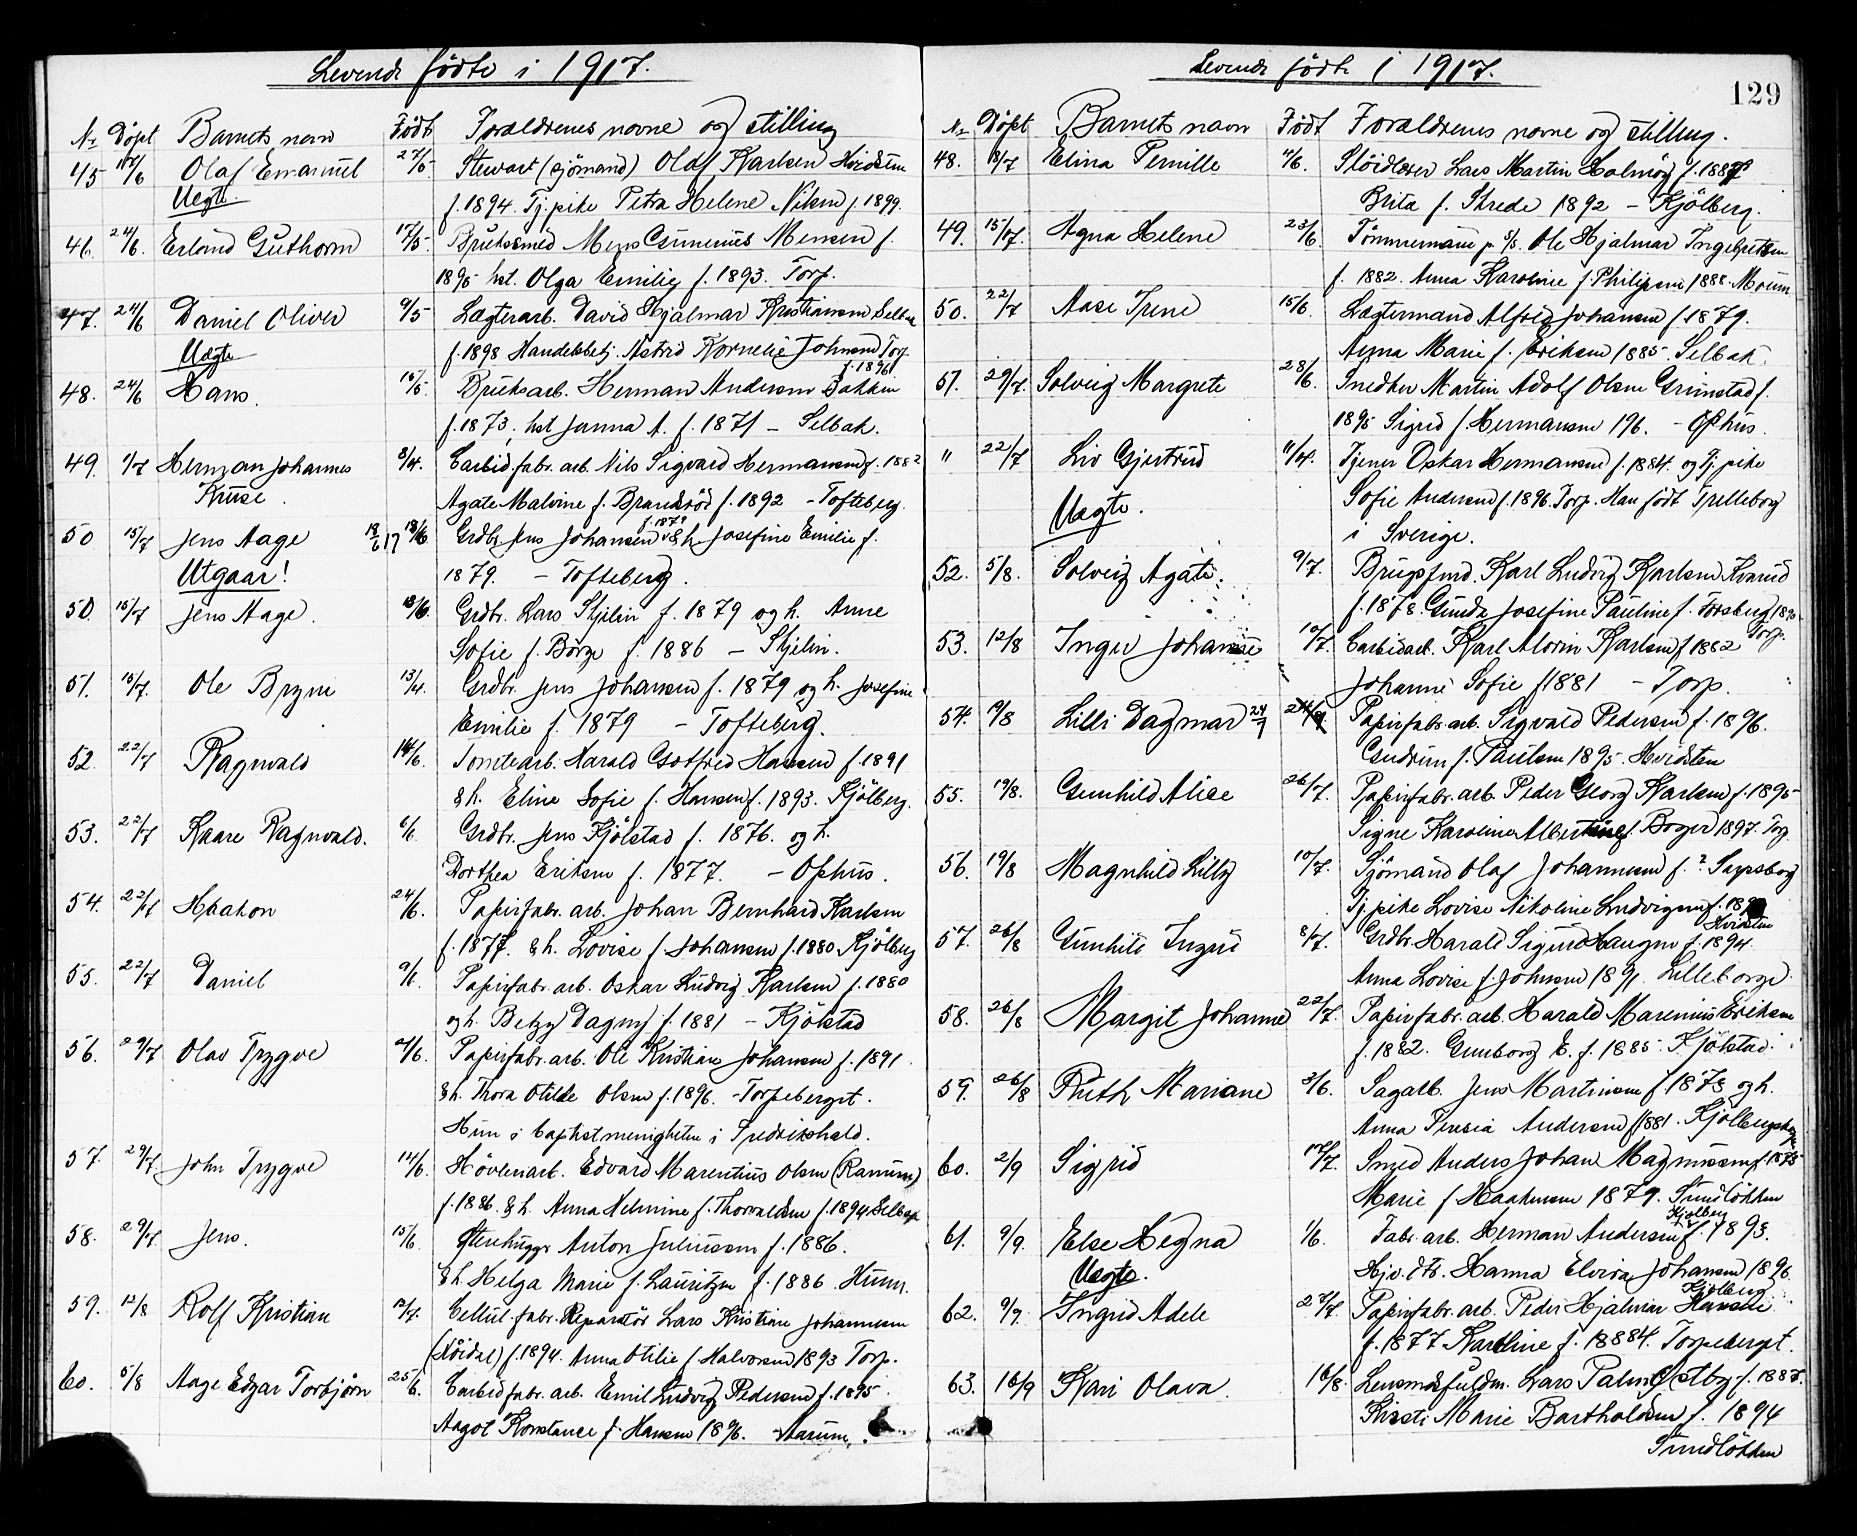 Levende fødte i 1917.
Nr Døpt Barnets navn Født Forældrenes navne og stilling
45 17/6 Olaf Emanuel 27/5. Stewart (sjömand) Olaf Karlsen Hvidsten
Uegte. f. 1894. Tj.pike Petra Helene Nilsen f. 1899.
46. 24/6. Erland Guthorm 17/5. Bruksmed Mens Gunerius Mensen f.
1895 hst. Olga Emilie f. 1893. Torp.
47. 24/6 Daniel Oliver 9/5 Lægterarb. David Hjalmar Kristiansen Selbak
Uægte f. 1898 Handelsbetj. Astrid Kornelie Johnsen Torp
f. 1896
48. 24/6 Hans. 15/5. Bruksarb. Herman Andersen Bakken
f. 1873, hst Janna A. f. 1871 – Selbak.
49. 1/7 Herman Johannes 8/4. Carbid.fabr. arb. Nils Sigvard Hermansen f. 1882
Kruse. Agate Malvine f. Brandsröd f. 1892 – Tofteberg.
50 15/7 Jens Aage 18/6 17 18/6 Grdbr Jens Johansen f. 1879 & h. Josefine Emilie f.
Utgaar! 1879. – Tofteberg.
50. 15/7 Jens Aage. 18/6. Grdbr. Lars Skjelin f. 1879 og h. Anne
Sofie f. Borge f. 1886 – Skjelin.
51. 15/7. Ole Bryni 13/4. Grdbr. Jens Johansen f. 1879 og h. Josefine
Emilie f. 1879 – Tofteberg.
52. 22/7 Ragnvald 14/6. Tomtearb. Harald Gotfred Hansen f. 1891
& h. Eline Sofie f. Hansen f. 1893. Kjölberg.
53. 22/7 Kaare Ragnvald. 6/6. Grdbr. Jens Kjölstad f. 1876. og h.
Dorthea Eriksen f. 1877. – Ophus.
54. 22/7 Haakon 24/6. Papirfabr. arb. Johan Bernhard Karlsen
f. 1877. & h. Lovise f Johansen f. 1880. Kjölberg
55. 22/7 Daniel 9/6. Papirfabr. arb. Oskar Ludvig Karlsen f. 1880
og h. Betzy Dagny f. 1881 – Kjölstad
56. 29/7 Olav Trygve 2/6. Papirfabr. arb. Ole Kristian Johansen f. 1891.
& h. Thora Otilde Olsen f. 1896. – Torpeberget.
Hun i Baptistmenigheten i Fredrikshald.
57. 29/7. John Trygve 12/6. Hövleriarb. Edvard Marentius Olsen (Ramum)
f. 1886. & h. Anna Helmine f. Thorvaldsen f. 1894 Selbak
58. 29/7. Jens. 15/6. Stenhugger Anton Juliussen f. 1886.
& h. Helga Marie f. Lauritzen f. 1886. Hunn.
59. 12/8 Rolf Kristian 12/7. Cellul.fabr. Reparatör Lars Kristian Johannesen
f. 1894. Anna Otilie f. Halvorsen 1893 Torp.
60. 5/8 Aage Edgar Torbjörn 25/6. Carbidfabr. arb. Emil Ludvig Pedersen f. 1895.
Aagot Konstance f. Hansen 1896.
Levende fødte i 1917.
129
Nr Døpt Barnets navn Født Forældrenes navne og stilling.
48. 8/7 Elina Pernille 11/6. Slöidlærer Lars Martin Holmöy f. 1887
Brita f. Strede 1892 – Kjölberg.
49. 15/7. Agna Helene 23/6. Tömmermand p. S/S. Ole Hjalmar Ingebretsen
f. 1882. Anna Karoline f Philipsen 1888. Moum
50. 22/7 Aase Irene 15/6. Lægtermand Alfred Johansen f. 1879.
Anna Marie f. Eriksen 1885. Selbak.
51. 29/7. Solveig Margrete 28/6. Snedker Martin Adolf Olsen Grimstad f.
1895 Sigrid f. Hermansen 196. – Ophus.
" 22/7 Liv Gjertrud 11/4. Tjener Oskar Hermansen f. 1884. og Tj.pike
Uægte. Sofie Andersen f. 1896. Torp. Han född Trelleborg
i Sverige.
52. 5/8. Solveig Agate. 9/7. Brugsfmd. Karl Ludvig Karlsen Kvarud
f. 1878. Gunda Josefine Pauline f. Torsberg 1890.
Torp.
53. 12/8 Inger Johanne 10/7. Carbidarb. Karl Alorin Karlsen f 1882
Johanne Sofie f 1881 – Torp.
54. 19/8 Lilli Dagmar 24/7 Papirfabr. arb. Sigvald Pedersen f. 1896.
Gudrun f. Paulsen 1895. Hvidsten
55. 19/8. Gunhild Alice 26/7. Papirfabr. arb. Peder Georg Karlsen f. 1895
Signe Karoline Albertine f. Borger 1897. Torp
56. 19/8 Magnhild Lilly 10/7. Sjömand Olaf Johannesen f. ? Sarpsborg
Tj.pike Lovise Nikoline Ludvigsen f.
Hvidsten
57. 26/8 Gunhild Ingrid 8/7. Grdbr. Harald Sigurd Haugen f. 1894.
Anna Lovise f. Johnsen 1891. Lilleborge.
58. 26/8 Margit Johanne 22/7. Papirfabr. arb. Harald Marenius Eriksen
f. 1882. Gunborg E. f. 1885. Kjölstad.
59. 26/8 Ruth Mariane 3/6. Sagarb. Jens Martinsen f 1873 og h.
Anna Teresia Andersen f 1881. Kjölbergskogen
60. 2/9 Sigrid 17/7. Smed Anders Johan Magnussen f. 1873
Marie f Haakensen 1879. Sundlökken
61. 9/9. Else Hegna 1/6. Fabr. arb. Herman Andersen f. 1893. Kjölberg
Uægte. Hjv. dtr. Hanna Elvira Johansen 1896.
Kjölberg
62. 9/9. Ingrid Adele 27/7. Papirfabr. arb. Peder Hjalmar Hansen
f. 1877 Karoline f. 18884. Torpeberget.
63. 16/9 Kari Olava. 16/8. Lensmdsfuldm. Lars Palm Østby f. 1887.
Kirsti Marie Bartholdsen f. 1894
Sundlökken